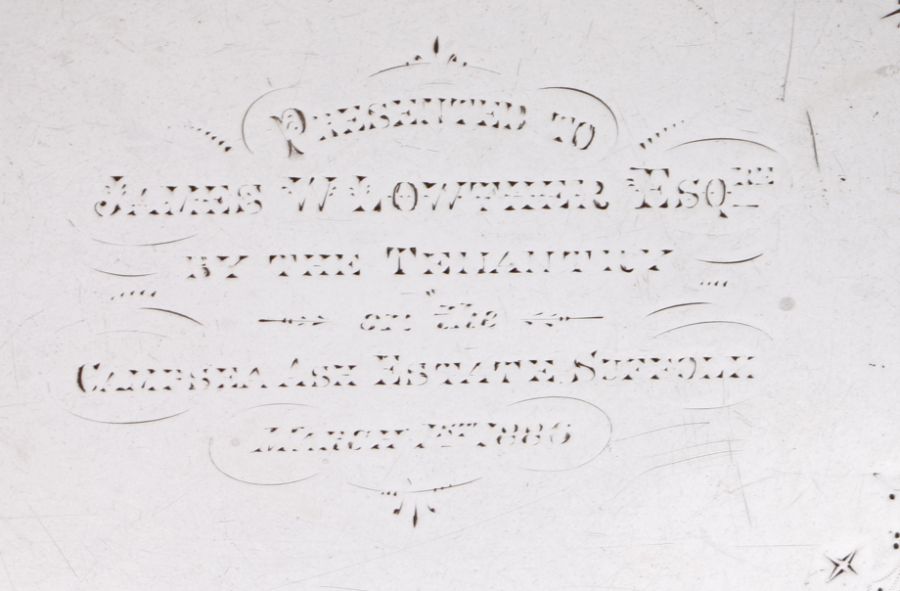 PRESENTED TO
JAMES W LOWTHER ESQRE
BY THE TENANTRY
on the
CAMPSEA ASH ESTATE SUFFOLK
MARCH 1ST 1886